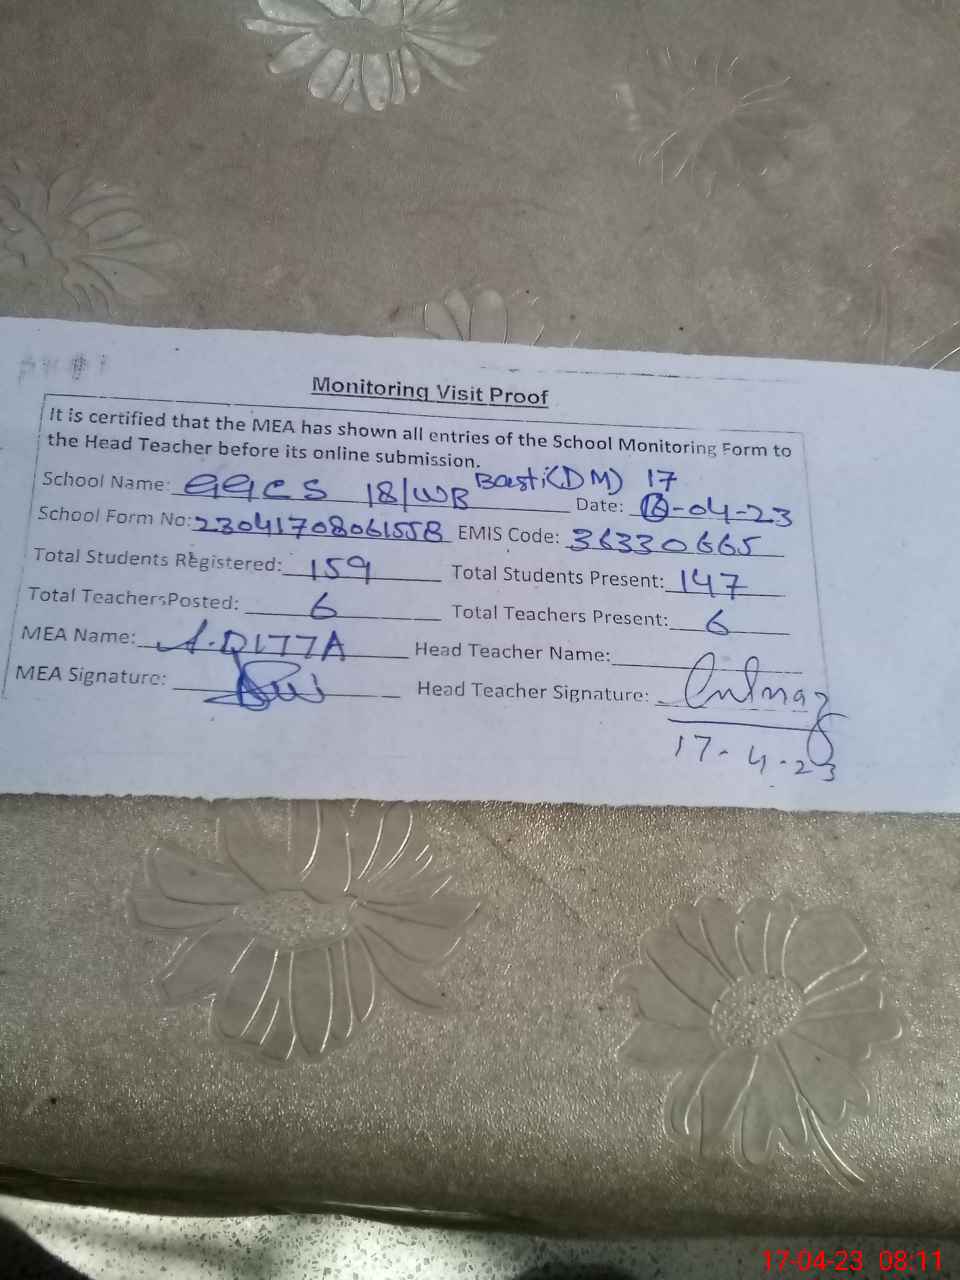 Monitoring Visit Proof
It is certified that the MEA has shown all entries of the School Monitoring Form to
the Head Teacher before its online submission.
School Name: GGCS 18/WB Basti(DM) Date: 17-04-23
School Form No: 23041708061558 EMIS Code: 36330665
Total Students Registered: 159 Total Students Present: 147
Total Teachers Posted: 6 Total Teachers Present: 6
MEA Name: Head Teacher Name:
MEA Signature: Head Teacher Signature:
17-4-23
17-04-23 08:11